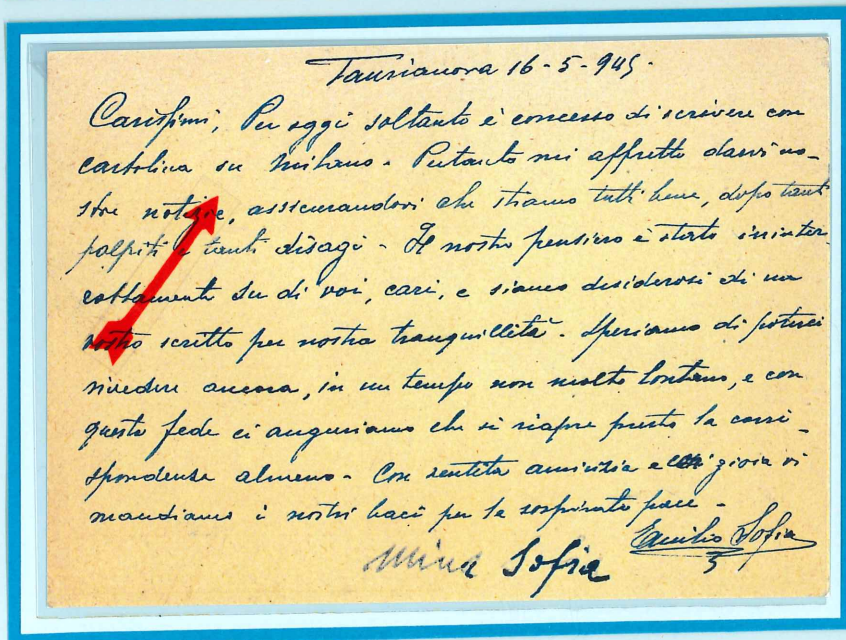 Taurianova 16-5-945.
Carissimi, Per oggi soltanto è concesso di scrivere con
cartolina su Milano - Pertanto mi affretto darvi no-
stre notizie, assicurandovi che stiamo tutti bene, dopo tanti
palpiti e tanti disagi - Il nostro pensiero è stato ininter-
cottamente su di voi, cari, e siamo desiderosi di un
vostro scritto per nostra tranquillità. Speriamo di poterci
rivedere ancora, in un tempo non molto lontano, e con
questa fede ci auguriamo che si riapre presto la corri-
spondenza almeno - Con sentita amicizia e gioia vi
mandiamo i nostri baci per la sospirata pace -
Emilio Sofia
Mina Sofia